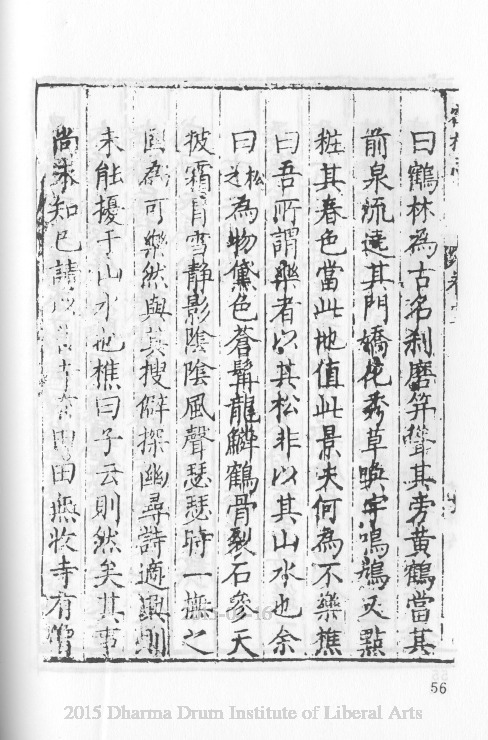 曰鶴林為古名刹磨笄聳其旁黄鶴當其
前泉流遶其門嬌花秀草喚宇鳴鵶又點
粧其春色當此地值此景夫何為不樂樵
曰吾所謂樂者以其松非以其山水也余
曰松之為物黛色蒼髯龍鱗鶴骨裂石參天
披霜冐雪静影陰陰風聲瑟瑟時一撫之
固為可樂然與其搜僻探幽尋詩適興則
未能擾于山水也樵曰子云則然矣其事
尚未知已請以田無收寺有僧
56
2015 Dharma Drum Institute of Liberal Arts